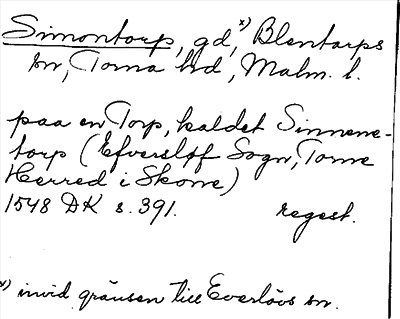 Simontorp, gd x), Blentarps
sn, Torna hd, Malm. l.
paa en Torp, kaldet Sinnene-
torp (Efversløf Sogn, Torne
Herred i Skone)
1548 DK s. 391. regest.
x) invid gränsen till Everlövs sn.